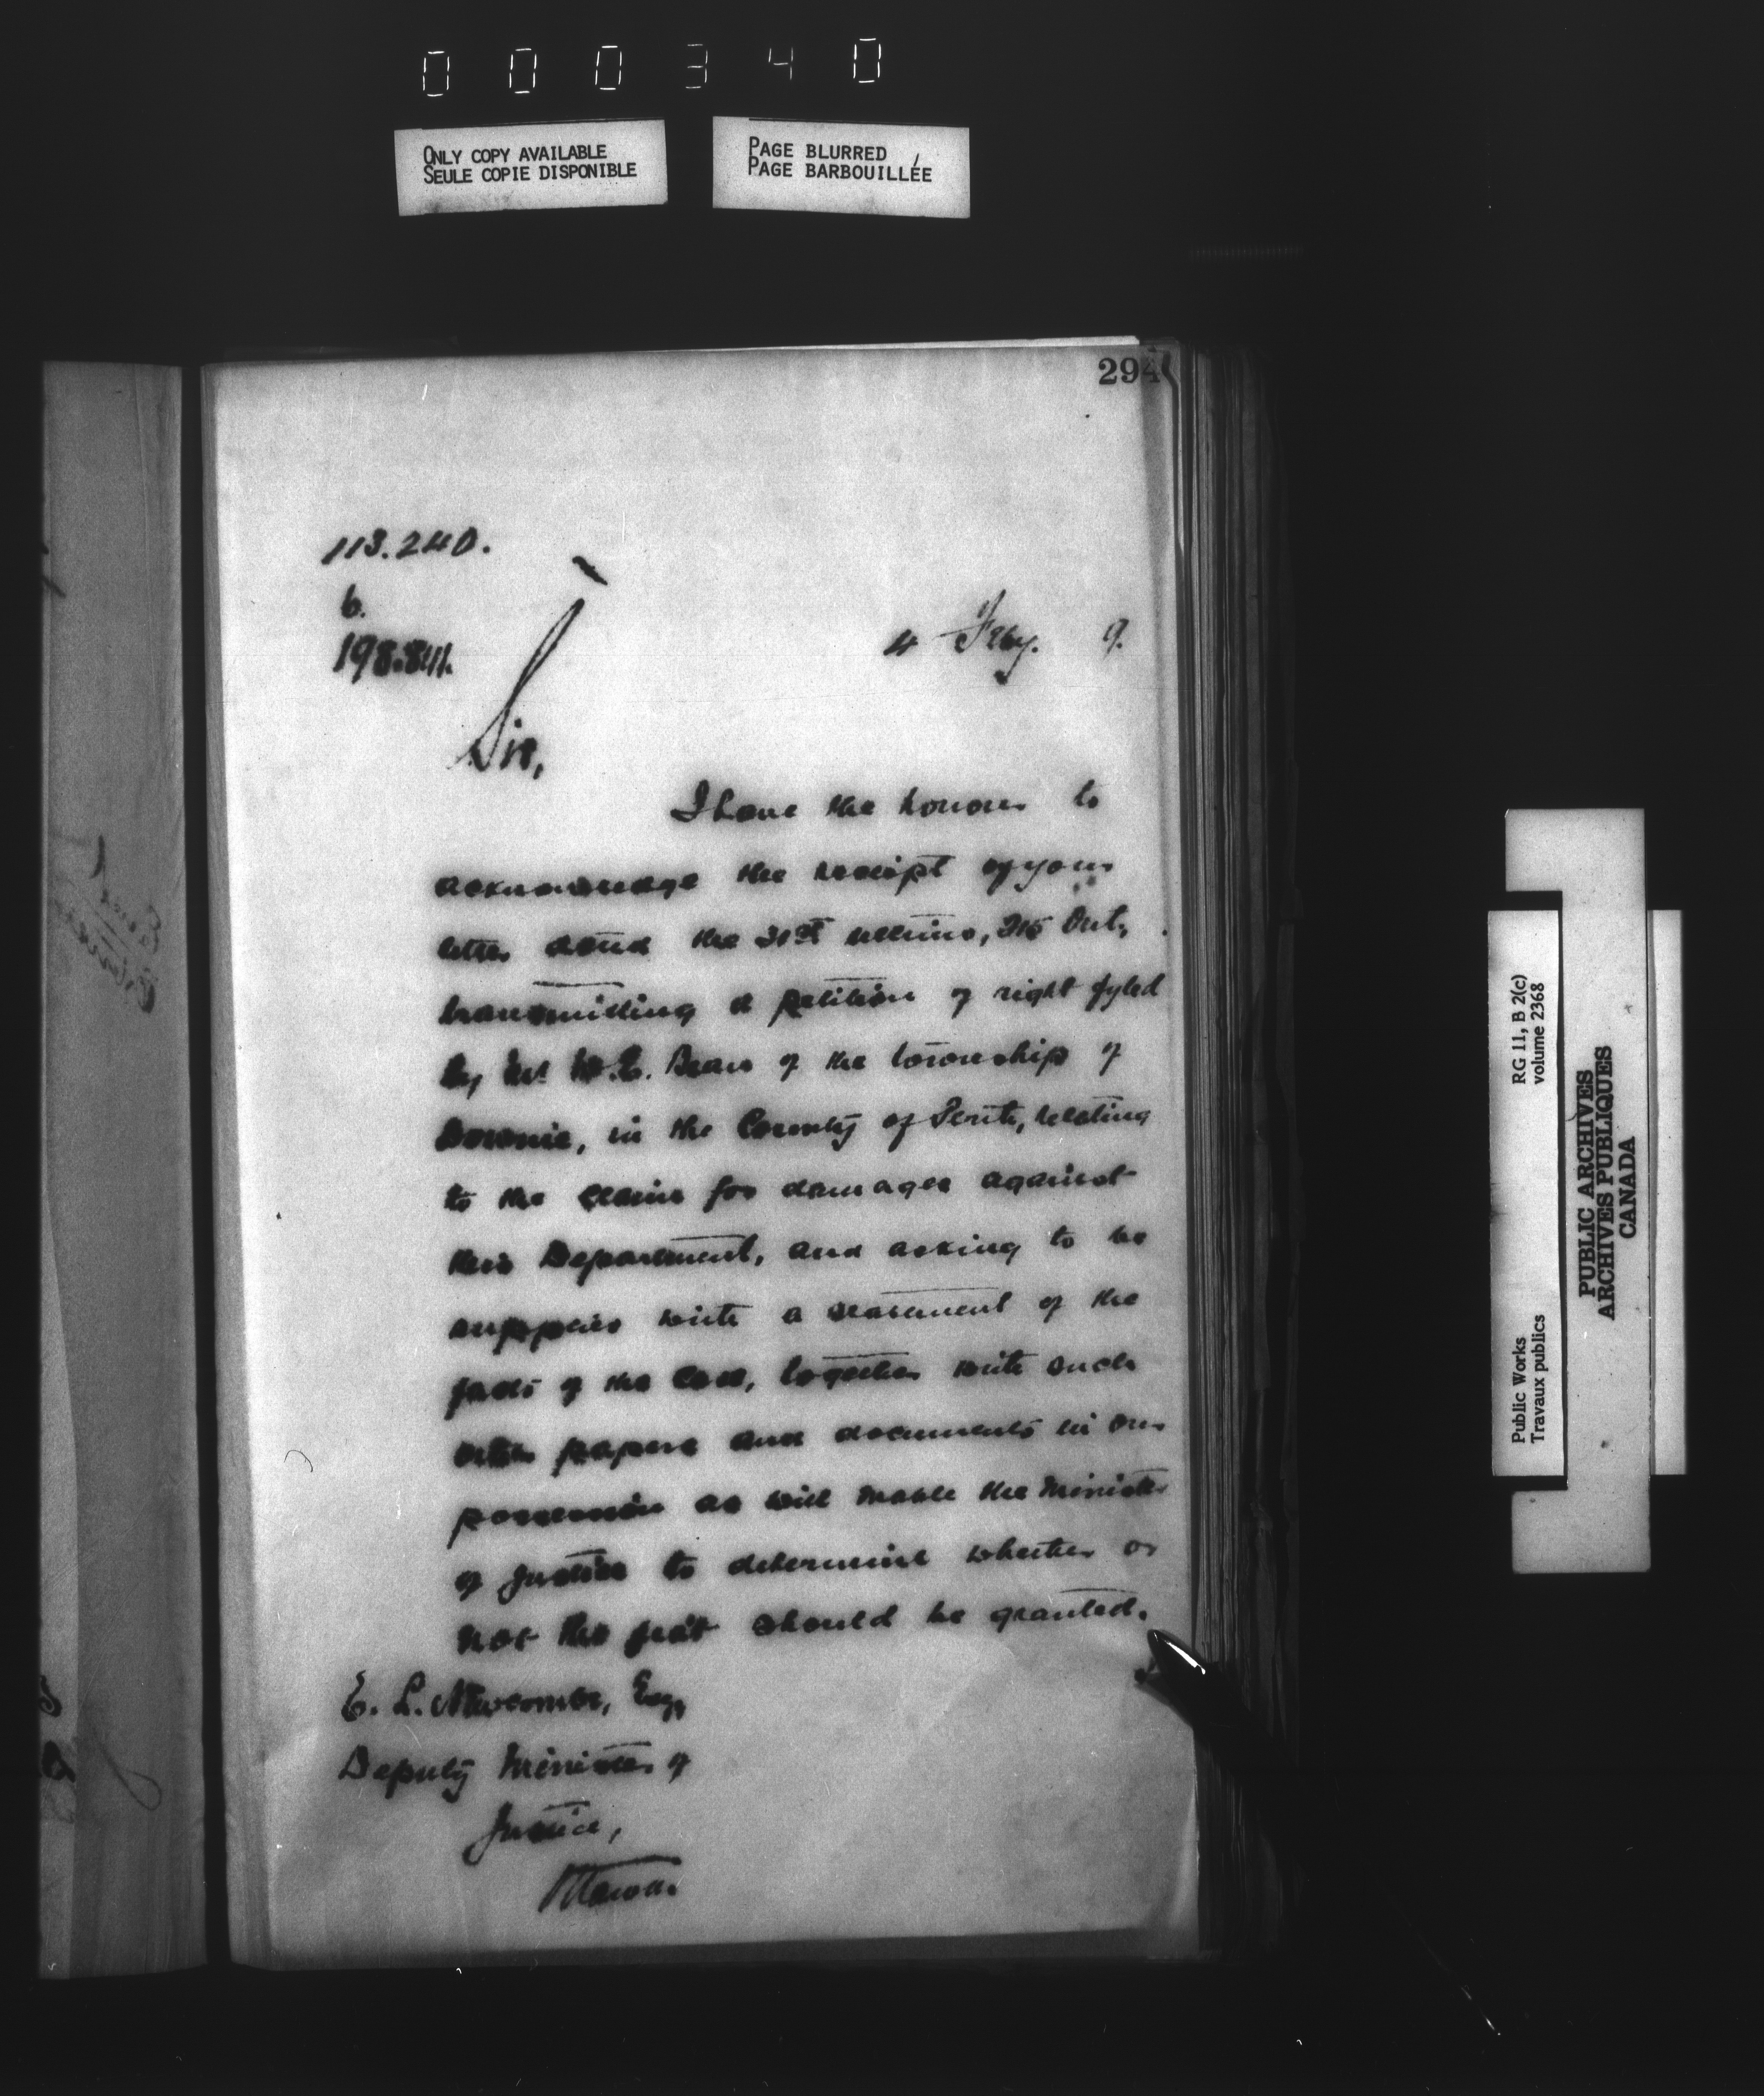 000340
ONLY COPY AVAILABLE
SEULE COPIE DISPONIBLE
PAGE BLURRED
PAGE BARBOUILLÉE
294
113.240.
6.
198.841.
4 Fby. 9.
Sir,
I have the honour to
acknowledge the receipt of your
letter dated the 31st ultimo, Ont.,
transmitting a petition of right fyled
by Mr W.E. of the township of
Downie, in the County of Perth, relating
to the claim for damages against
this Department, and asking to be
supplied with a statement of the
facts of the case, together with such
other papers and documents in our
possession as will enable the Minister
of Justice to determine whether or
not the fiat should be granted.
E. L. Newcombe, Esq,
Deputy Minister of
Justice,
Ottawa.
RG 11, B 2(c)
volume 2368
Public Works
Travaux publics
PUBLIC ARCHIVES
ARCHIVES PUBLIQUES
CANADA